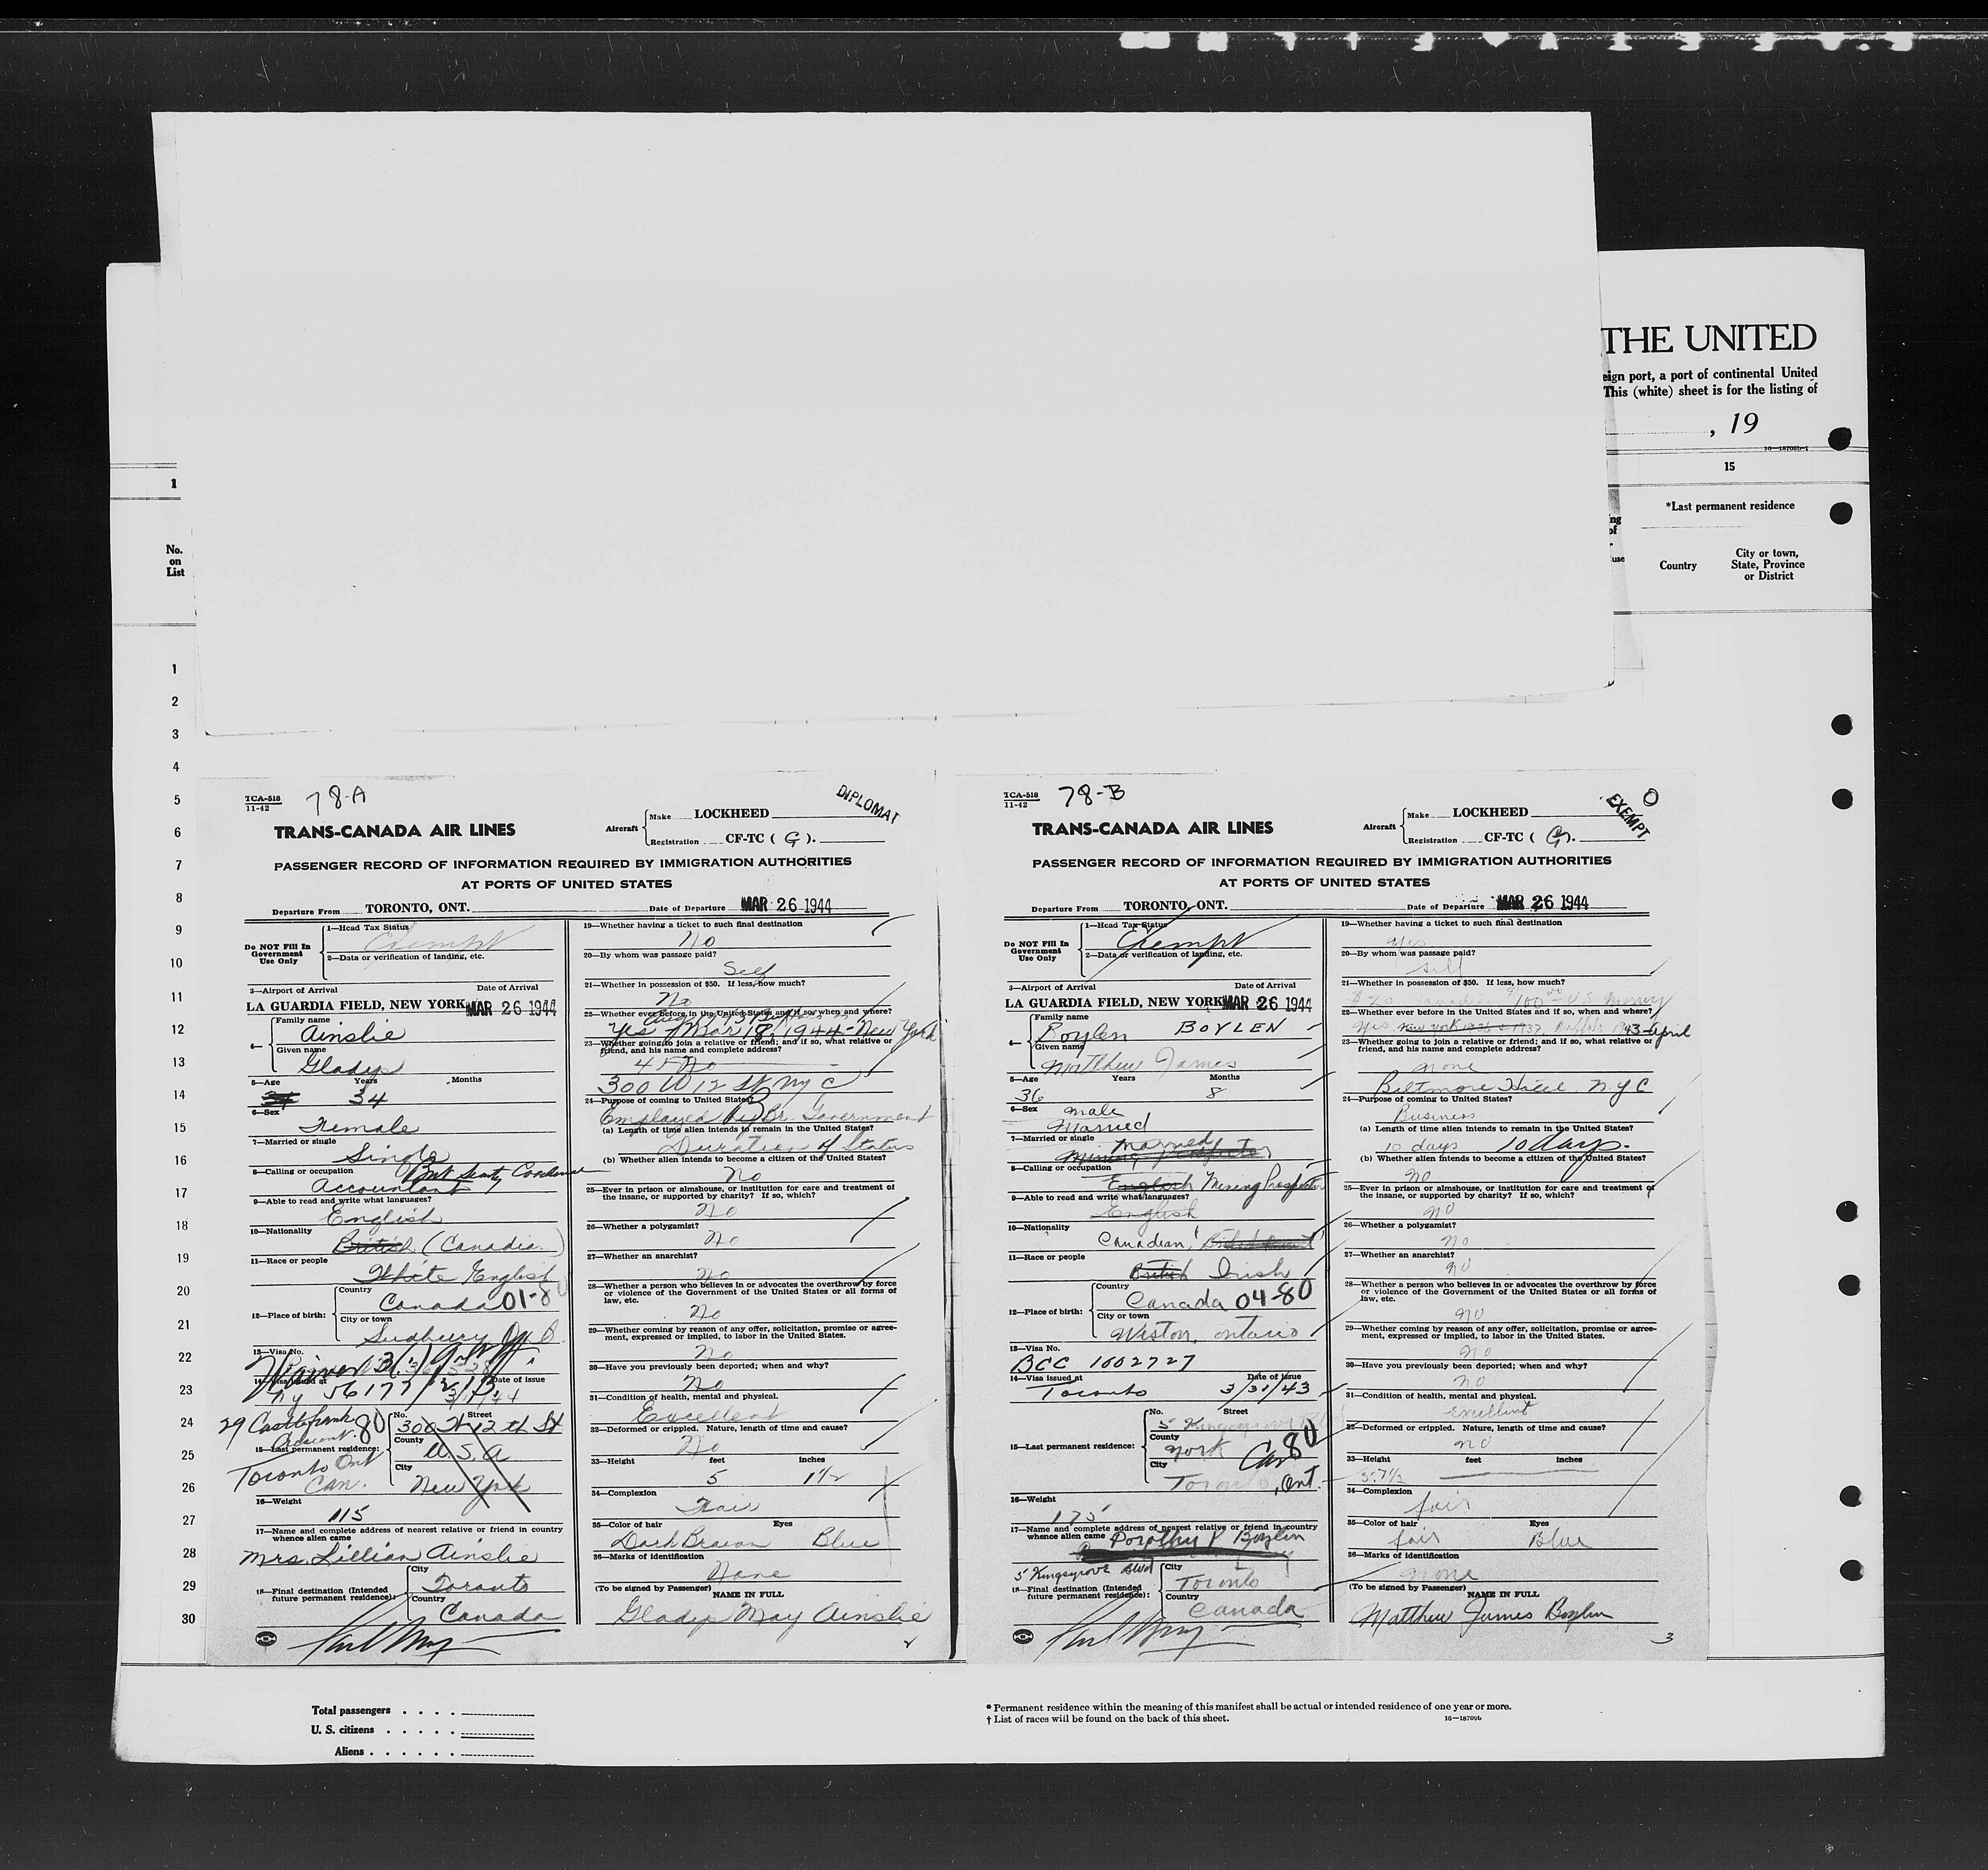 THE UNITED
eign port, a port of continental United
This (white) sheet is for the listing of
, 19
16—18709b-1
1
15
No.
on
List
ng
of
use
*Last permanent residence
Country
City or town,
State, Province
or District
1
2
3
4
5
6
7
8
9
10
11
12
13
14
15
16
17
18
19
20
21
22
23
24
25
26
27
28
29
30
TCA-518
11-42
78-A
DIPLOMAT
TRANS-CANADA AIR LINES
Aircraft
Make LOCKHEED
Registration CF-TC ( G ).
PASSENGER RECORD OF INFORMATION REQUIRED BY IMMIGRATION AUTHORITIES
AT PORTS OF UNITED STATES
Departure From TORONTO, ONT. Date of Departure MAR 26 1944
Do NOT Fill In
Government
Use Only
1—Head Tax Status
Exempt
2—Data or verification of landing, etc.
3—Airport of Arrival Date of Arrival
LA GUARDIA FIELD, NEW YORK MAR 26 1944
4— Family name
Ainslie
Given name
Gladys
5—Age Years Months
34
6—Sex
Female
7—Married or single
Single
8—Calling or occupation
Accountant
9—Able to read and write what languages?
English
10—Nationality
British (Canadian)
11—Race or people
White English
12—Place of birth:
Country
Canada 01-80
City or town
Sudbury
13—Visa No.
14—Visa issued at Date of issue
NY 56177
29 Castlefrank
Crescent. 80
Toronto Ont
Can.
15—Last permanent residence:
No. Street
300 W 12 th St
County
U.S.A.
City
New York
16—Weight
115
17—Name and complete address of nearest relative or friend in country
whence alien came
Mrs. Lillian Ainslie
18—Final destination (Intended
future permanent residence):
City
Toronto
Country
Canada
19—Whether having a ticket to such final destination
No
20—By whom was passage paid?
Self
21—Whether in possession of $50. If less, how much?
No
22—Whether ever before in the United States and if so, when and where?
Yes Mar 18, 1944 - New York
23—Whether going to join a relative or friend; and if so, what relative or
friend, and his name and complete address?
No
300 W 12 St NYC
24—Purpose of coming to United States?
Employed by Br. Government
(a) Length of time alien intends to remain in the United States?
Duration of Status
(b) Whether alien intends to become a citizen of the United States?
No
25—Ever in prison or almshouse, or institution for care and treatment of
the insane, or supported by charity? If so, which?
No
26—Whether a polygamist?
No
27—Whether an anarchist?
No
28—Whether a person who believes in or advocates the overthrow by force
or violence of the Government of the United States or all forms of
law, etc.
No
29—Whether coming by reason of any offer, solicitation, promise or agree-
ment, expressed or implied, to labor in the United States.
No
30—Have you previously been deported; when and why?
No
31—Condition of health, mental and physical.
Excellent
32—Deformed or crippled. Nature, length of time and cause?
No
33—Height feet inches
5 1½
34—Complexion
Fair
35—Color of hair Eyes
Dark Brown Blue
36—Marks of identification
None
(To be signed by Passenger)
NAME IN FULL
Gladys May Ainslie
2
TCA-518
11-42
78-B
EXEMPT
0
TRANS-CANADA AIR LINES
Aircraft
Make LOCKHEED
Registration CF-TC ( G ).
PASSENGER RECORD OF INFORMATION REQUIRED BY IMMIGRATION AUTHORITIES
AT PORTS OF UNITED STATES
Departure From TORONTO, ONT. Date of Departure MAR 26 1944
Do NOT Fill In
Government
Use Only
1—Head Tax Status
Exempt
2—Data or verification of landing, etc.
3—Airport of Arrival Date of Arrival
LA GUARDIA FIELD, NEW YORK MAR 26 1944
4— Family name
Boylen BOYLEN
Given name
Matthew James
5—Age Years Months
36 8
6—Sex
male
Married
7—Married or single
Married
Mining Prospector
8—Calling or occupation
English Mining Prospector
9—Able to read and write what languages?
English
10—Nationality
Canadian
11—Race or people
British Irish
12—Place of birth:
Country
Canada 04-80
City or town
Weston, Ontario
13—Visa No.
BCC 1002727
14—Visa issued at Date of issue
Toronto 3/31/43
15—Last permanent residence:
No. Street
5 Kingsgrove
County
York Can 80
City
Toronto, Ont.
16—Weight
175
17—Name and complete address of nearest relative or friend in country
whence alien came
Dorothy V Boylen
5 Kingsgrove Blvd
18—Final destination (Intended
future permanent residence):
City
Toronto
Country
Canada
19—Whether having a ticket to such final destination
yes
20—By whom was passage paid?
self
21—Whether in possession of $50. If less, how much?
$20 Canadian $100.00 U.S. Money
22—Whether ever before in the United States and if so, when and where?
yes. New York 1936 & 1937, Buffalo 1943-April
23—Whether going to join a relative or friend; and if so, what relative or
friend, and his name and complete address?
none
Biltmore Hotel N.Y.C
24—Purpose of coming to United States?
Business
(a) Length of time alien intends to remain in the United States?
10 days 10 days.
(b) Whether alien intends to become a citizen of the United States?
no
25—Ever in prison or almshouse, or institution for care and treatment of
the insane, or supported by charity? If so, which?
no
26—Whether a polygamist?
no
27—Whether an anarchist?
no
28—Whether a person who believes in or advocates the overthrow by force
or violence of the Government of the United States or all forms of
law, etc.
no
29—Whether coming by reason of any offer, solicitation, promise or agree-
ment, expressed or implied, to labor in the United States.
no
30—Have you previously been deported; when and why?
no
31—Condition of health, mental and physical.
excellent
32—Deformed or crippled. Nature, length of time and cause?
no
33—Height feet inches
5.7½
34—Complexion
fair
35—Color of hair Eyes
fair Blue
36—Marks of identification
none
(To be signed by Passenger)
NAME IN FULL
Matthew James Boylen
3
Total passengers . . . .
U. S. citizens . . . .
Aliens . . . . . .
* Permanent residence within the meaning of this manifest shall be actual or intended residence of one year or more.
† List of races will be found on the back of this sheet.
16—18709b